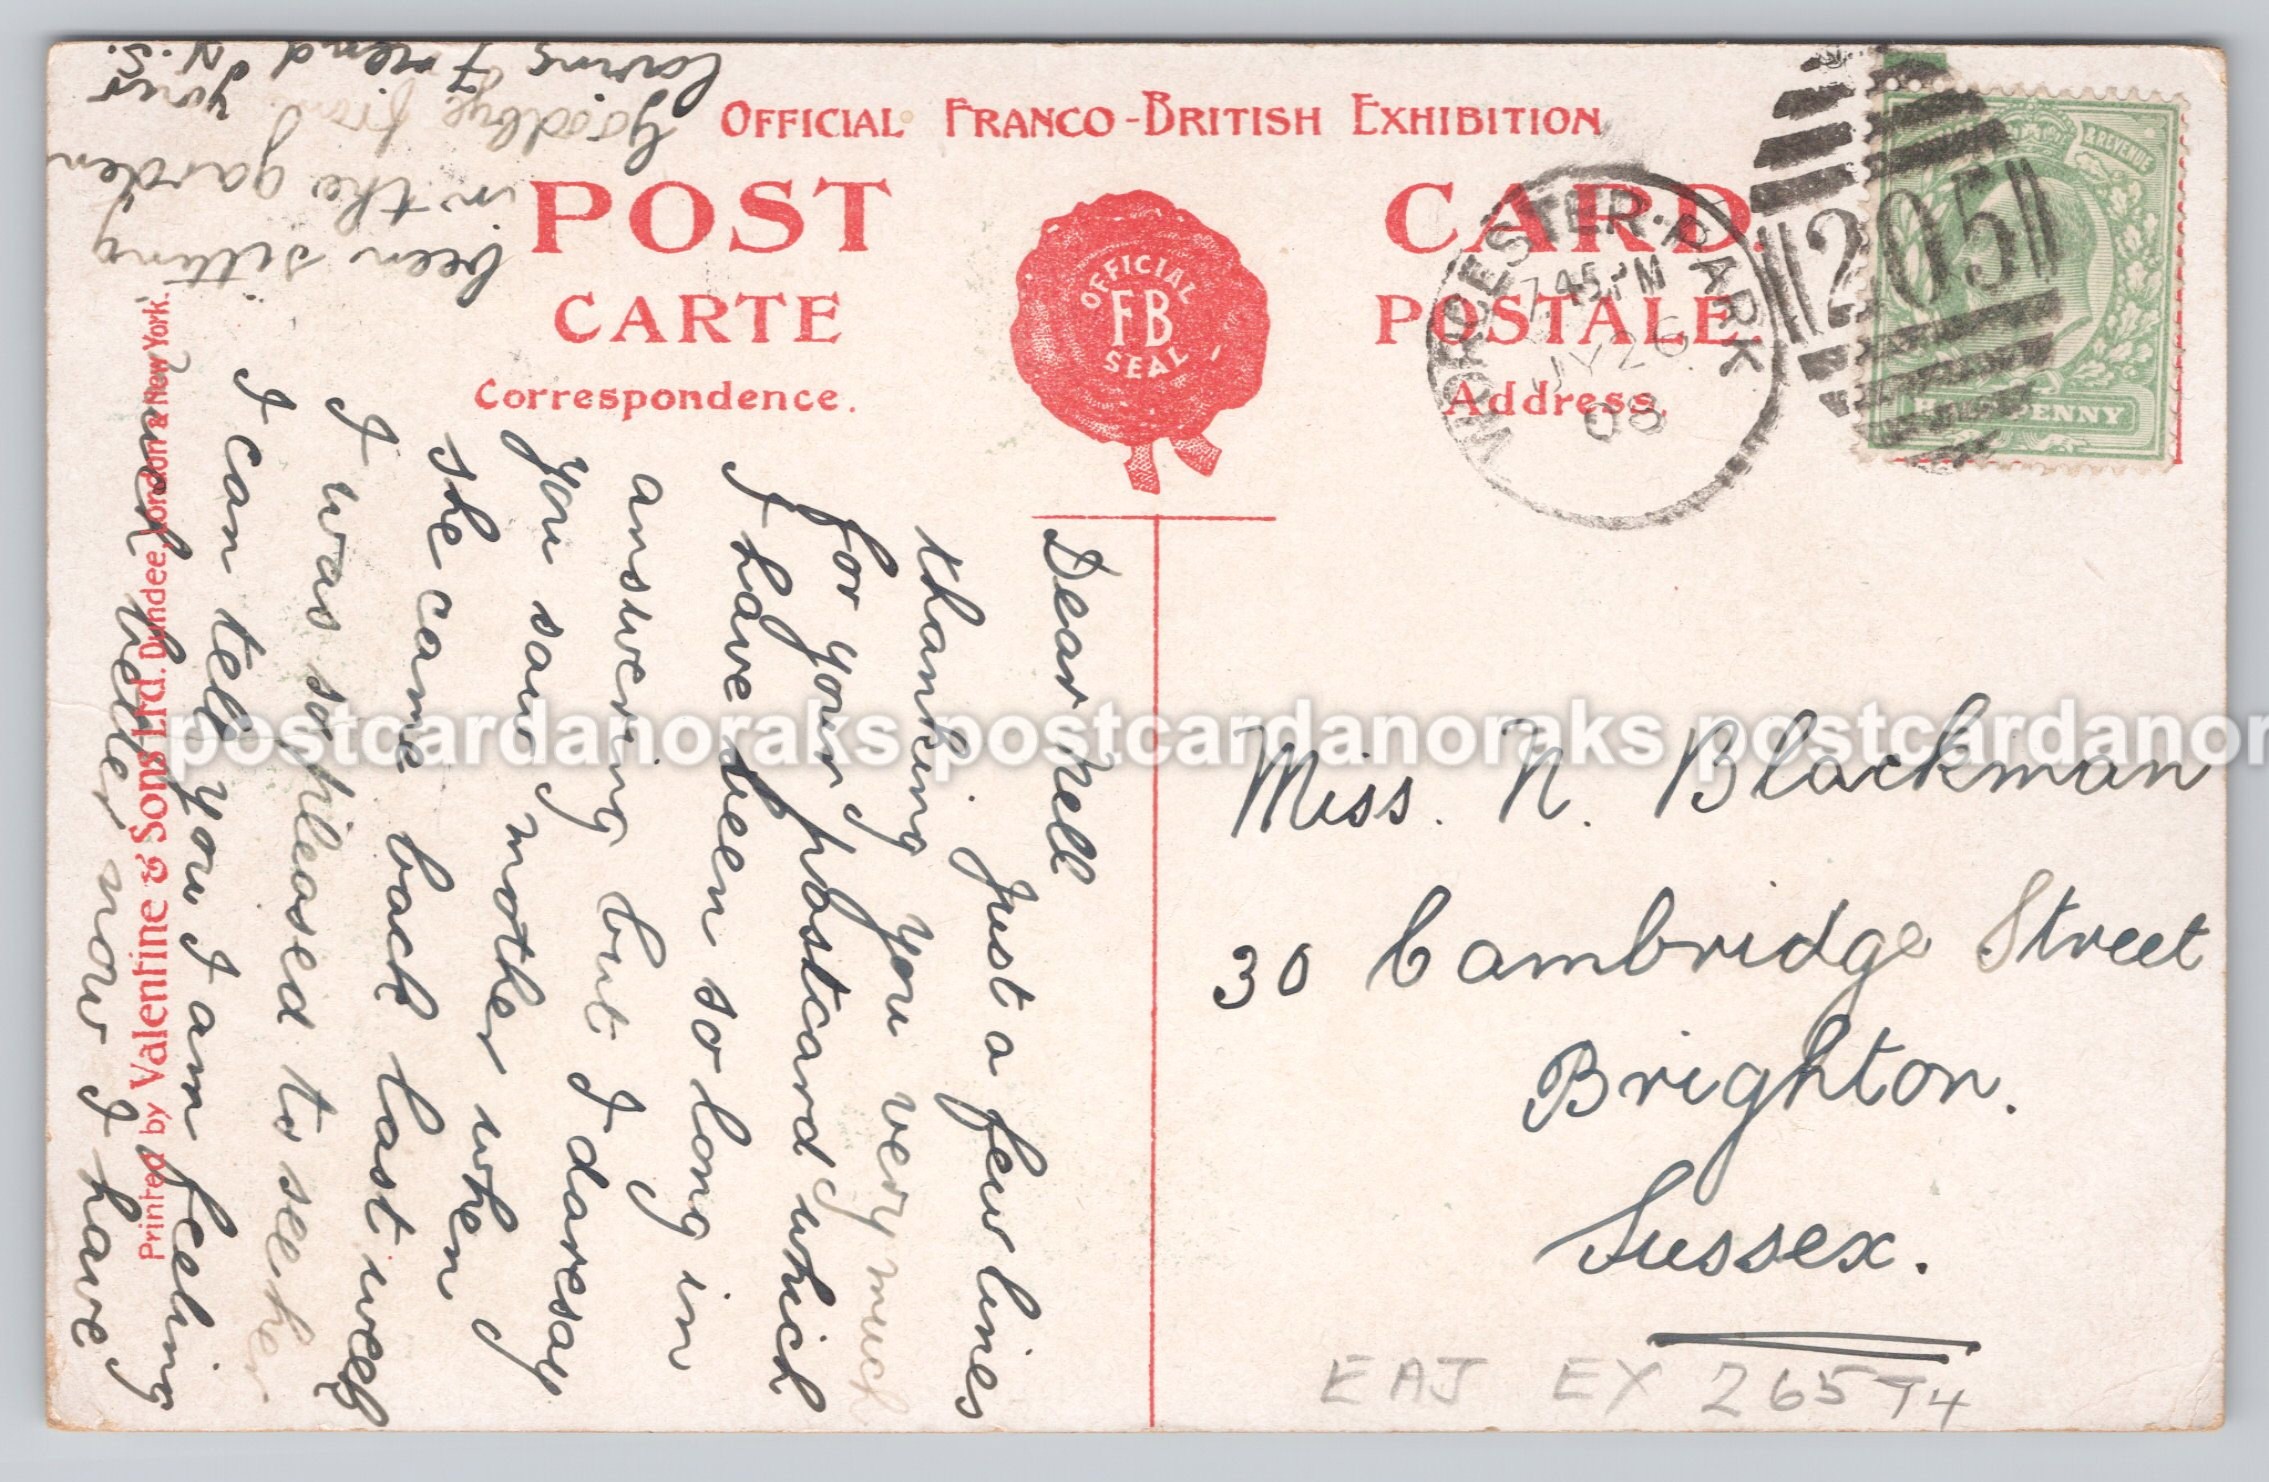 OFFICIAL FRANCO-BRITISH EXHIBITION
POST CARD.
CARTE POSTALE.
Correspondence.
Address.
OFFICIAL
FB
SEAL
WORCESTER·PARK
7.45 PM
JY 26
08
205
& REVENUE
HALFPENNY
Dear Nell
Just a few lines
thanking you very much
for your postcard which
I have been so long in
answering but I daresay
you saw mother when
she came back last week
I was so pleased to see her
I can tell you I am feeling
much better now I have
been sitting
in the garden
Goodbye from
loving Friend
your
N.S.
Miss. N. Blackman
30 Cambridge Street
Brighton.
Sussex.
EAJ EX 265 T4
Printed by Valentine & Sons Ltd. Dundee, London & New York.
postcardanoraks postcardanoraks postcardanor